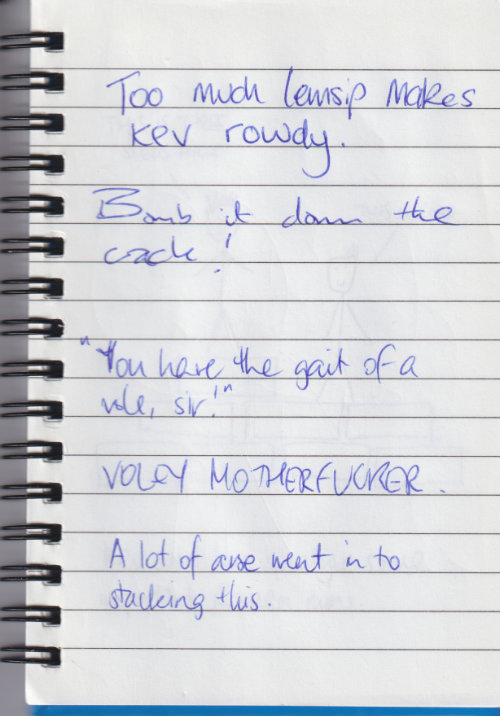 Too much lemsip makes
kev rowdy.
Bomb it down the
crack!
"You have the gait of a
vole, sir!"
VOLEY MOTHERFUCKER.
A lot of arse went in to
stacking this.